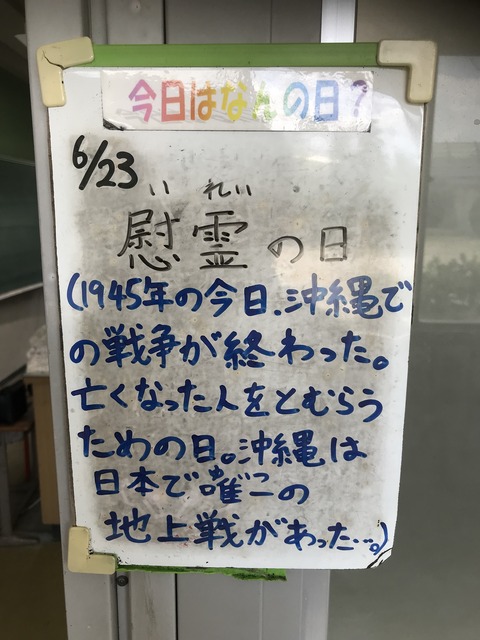 今日はなんの日?
6/23
いれい
慰霊の日
(1945年の今日、沖縄で
の戦争が終わった。
亡くなった人をとむらう
ための日。沖縄は
ゆいつ
日本で唯一の
地上戦があった…。)